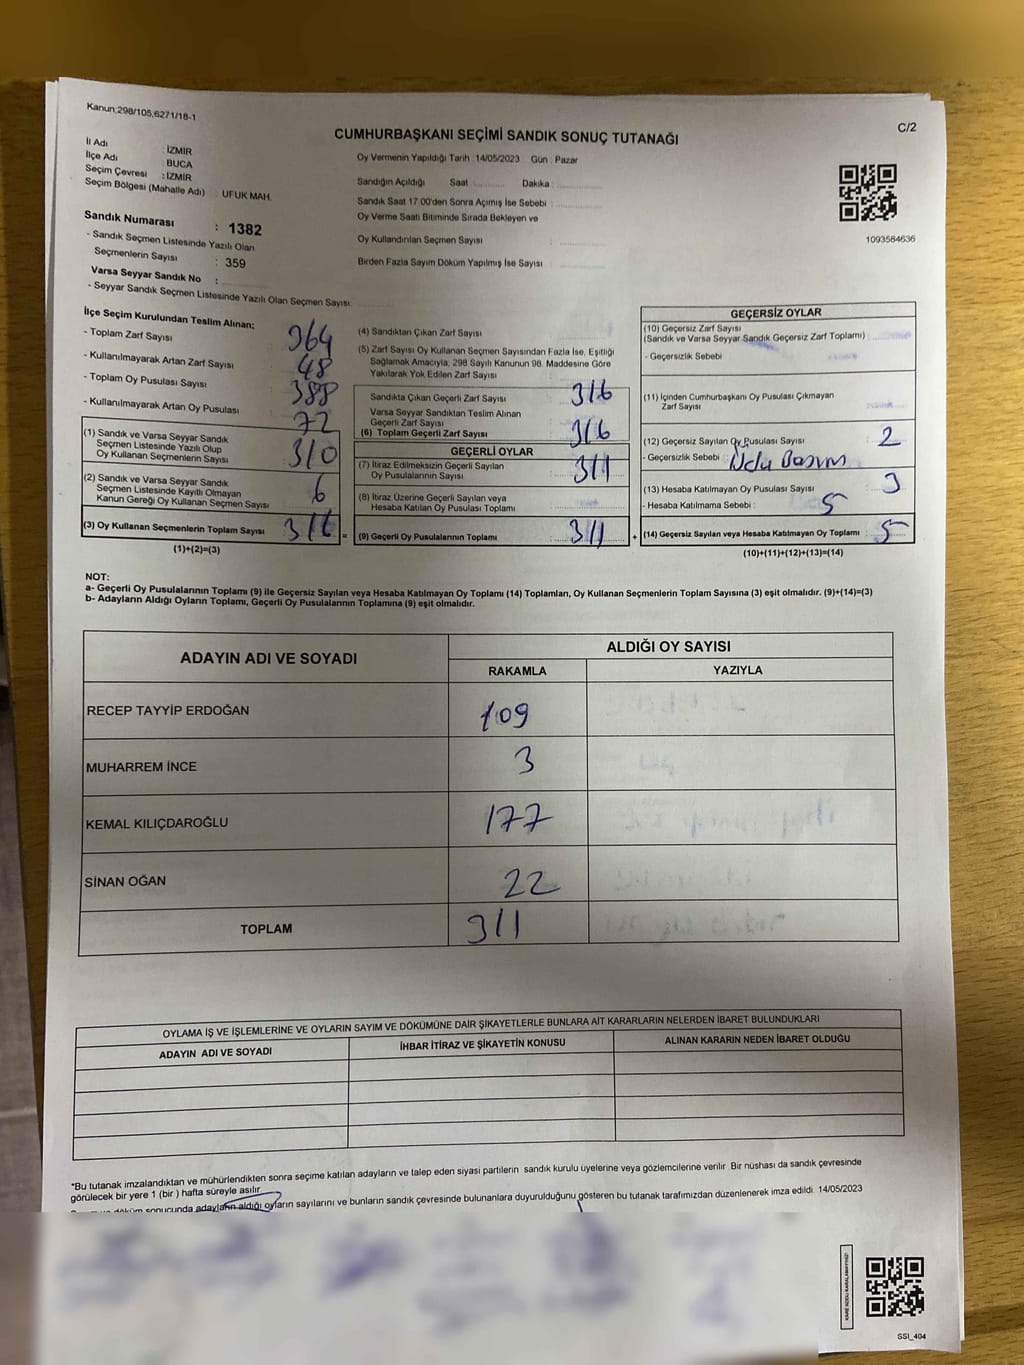 Kanun;298/105,6271/18-1
C/2
CUMHURBAŞKANI SEÇİMİ SANDIK SONUÇ TUTANAĞI
İl Adı : İZMİR
İlçe Adı : BUCA
Seçim Çevresi : İZMİR
Seçim Bölgesi (Mahalle Adı) : UFUK MAH.
Oy Vermenin Yapıldığı Tarih 14/05/2023 Gün : Pazar
Sandığın Açıldığı Saat ........... Dakika : ...............
Sandık Saat 17.00'den Sonra Açımış İse Sebebi : ...............
Oy Verme Saati Bitiminde Sırada Bekleyen ve
Oy Kullandırılan Seçmen Sayısı : ...............
Birden Fazla Sayım Döküm Yapılmış İse Sayısı ...............
1093584636
Sandık Numarası : 1382
- Sandık Seçmen Listesinde Yazılı Olan
Seçmenlerin Sayısı : 359
Varsa Seyyar Sandık No :
- Seyyar Sandık Seçmen Listesinde Yazılı Olan Seçmen Sayısı:
İlçe Seçim Kurulundan Teslim Alınan;
- Toplam Zarf Sayısı 364
- Kullanılmayarak Artan Zarf Sayısı 48
- Toplam Oy Pusulası Sayısı 388
- Kullanılmayarak Artan Oy Pusulası 72
(1) Sandık ve Varsa Seyyar Sandık
Seçmen Listesinde Yazılı Olup
Oy Kullanan Seçmenlerin Sayısı 310
(2) Sandık ve Varsa Seyyar Sandık
Seçmen Listesinde Kayıtlı Olmayan
Kanun Gereği Oy Kullanan Seçmen Sayısı 6
(3) Oy Kullanan Seçmenlerin Toplam Sayısı 316 =
(1)+(2)=(3)
(4) Sandıktan Çıkan Zarf Sayısı
(5) Zarf Sayısı Oy Kullanan Seçmen Sayısından Fazla İse, Eşitliği
Sağlamak Amacıyla, 298 Sayılı Kanunun 98. Maddesine Göre
Yakılarak Yok Edilen Zarf Sayısı
Sandıkta Çıkan Geçerli Zarf Sayısı 316
Varsa Seyyar Sandıktan Teslim Alınan
Geçerli Zarf Sayısı
(6) Toplam Geçerli Zarf Sayısı 316
GEÇERLİ OYLAR
(7) İtiraz Edilmeksizin Geçerli Sayılan
Oy Pusulalarının Sayısı 311
(8) İtiraz Üzerine Geçerli Sayılan veya
Hesaba Katılan Oy Pusulası Toplamı
(9) Geçerli Oy Pusulalarının Toplamı 311 +
GEÇERSİZ OYLAR
(10) Geçersiz Zarf Sayısı
(Sandık ve Varsa Seyyar Sandık Geçersiz Zarf Toplamı) :
- Geçersizlik Sebebi
(11) İçinden Cumhurbaşkanı Oy Pusulası Çıkmayan
Zarf Sayısı
(12) Geçersiz Sayılan Oy Pusulası Sayısı : 2
- Geçersizlik Sebebi : Basım
(13) Hesaba Katılmayan Oy Pusulası Sayısı : 3
- Hesaba Katılmama Sebebi : 5
(14) Geçersiz Sayılan veya Hesaba Katılmayan Oy Toplamı : 5
(10)+(11)+(12)+(13)=(14)
NOT:
a- Geçerli Oy Pusulalarının Toplamı (9) ile Geçersiz Sayılan veya Hesaba Katılmayan Oy Toplamı (14) Toplamları, Oy Kullanan Seçmenlerin Toplam Sayısına (3) eşit olmalıdır. (9)+(14)=(3)
b- Adayların Aldığı Oyların Toplamı, Geçerli Oy Pusulalarının Toplamına (9) eşit olmalıdır.
ADAYIN ADI VE SOYADI ALDIĞI OY SAYISI
RAKAMLA YAZIYLA
RECEP TAYYİP ERDOĞAN 109
MUHARREM İNCE 3
KEMAL KILIÇDAROĞLU 177
SİNAN OĞAN 22
TOPLAM 311
OYLAMA İŞ VE İŞLEMLERİNE VE OYLARIN SAYIM VE DÖKÜMÜNE DAİR ŞİKAYETLERLE BUNLARA AİT KARARLARIN NELERDEN İBARET BULUNDUKLARI
ADAYIN ADI VE SOYADI İHBAR İTİRAZ VE ŞİKAYETİN KONUSU ALINAN KARARIN NEDEN İBARET OLDUĞU
*Bu tutanak imzalandıktan ve mühürlendikten sonra seçime katılan adayların ve talep eden siyasi partilerin sandık kurulu üyelerine veya gözlemcilerine verilir. Bir nüshası da sandık çevresinde
görülecek bir yere 1 (bir ) hafta süreyle asılır.
sonucunda adayların aldığı oyların sayılarını ve bunların sandık çevresinde bulunanlara duyurulduğunu gösteren bu tutanak tarafımızdan düzenlenerek imza edildi. 14/05/2023
SSI_404